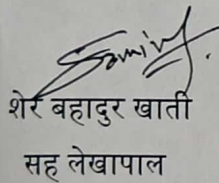 शेर बहादुर खाती
सह लेखापाल